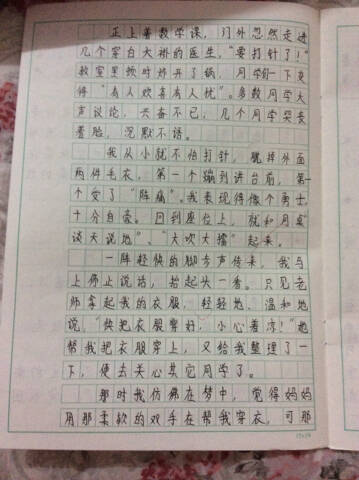 正上着数学课，门外忽然走进
几个穿白大褂的医生，"要打针了！"
教室里顿时炸开了锅，同学们一下变
得"有人欢喜有人忧"。多数同学大
声议论，兴奋不已，几个同学哭丧
着脸，沉默不语。
我从小就不怕打针，脱掉外面
两件毛衣，第一个蹦到讲台前，第一
个受了"阵痛"。我表现得像个勇士，
十分自豪。回到座位上，就和同桌"
谈天说地"、"大吹大擂"起来。
一阵轻快的脚步声传来，我马
上停止说话，抬起头一看。只见老
师拿起我的衣服，轻轻地、温和地
说："快把衣服穿好，小心着凉！"她
帮我把衣服穿上，又给我整理了一
下，便去关心其它同学了。
那时我仿佛在梦中，觉得妈妈
用那柔软的双手在帮我穿衣，可那